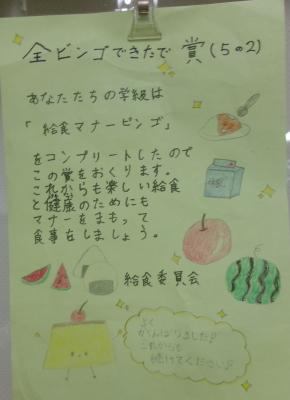 全ビンゴできたで賞(5の2)
あなたたちの学級は
「給食マナービンゴ」
をコンプリートしたので
この賞をおくります。
これからも楽しい給食
と健康のためにも
マナーをまもって
食事をしましょう。
給食委員会
よく
がんばりました!
これからも
続けてください!